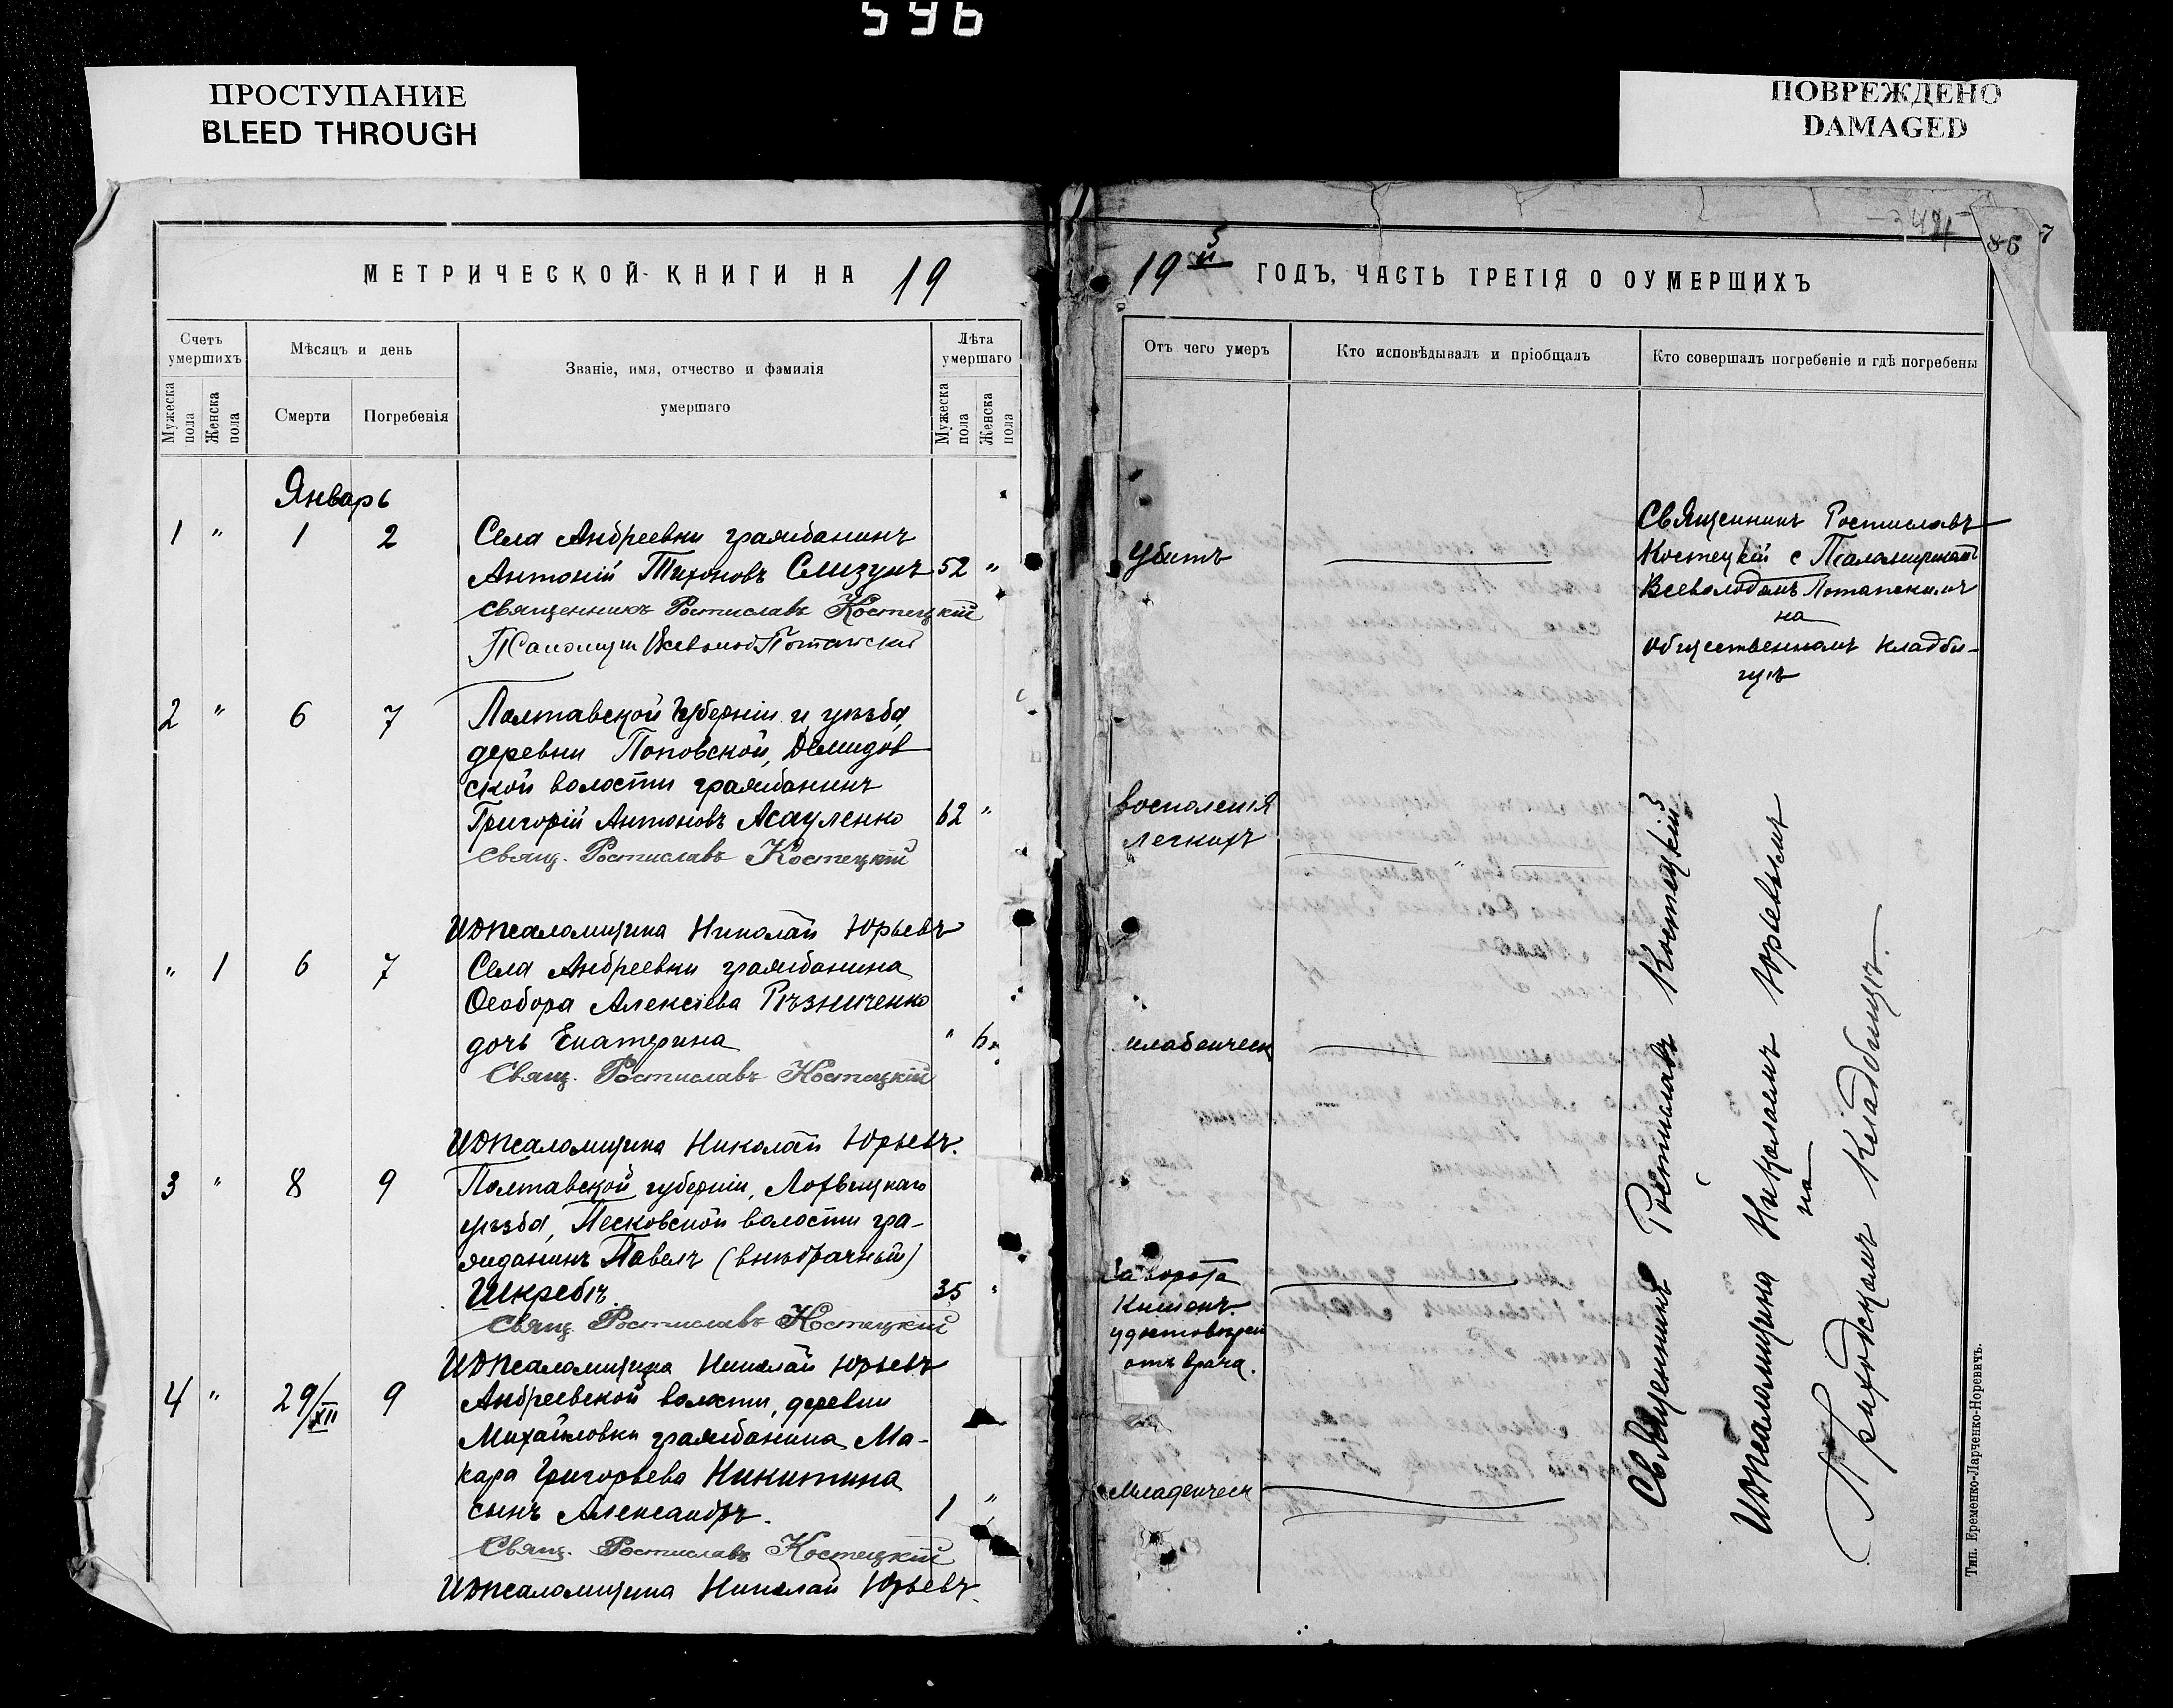 596
ПРОСТУПАНИЕ
BLEED THROUGH
ПОВРЕЖДЕНО
DAMAGED
86
7
МЕТРИЧЕСКОЙ КНИГИ НА 19
19 ГОДЪ, ЧАСТЬ ТРЕТІЯ О ОУМЕРШИХЪ
Счетъ умершихъ
Мужеска пола
Женска пола
Мѣсяцъ и день
Смерти
Погребенія
Званіе, имя, отчество и фамилія
умершаго
Лѣта умершаго
Мужеска пола
Женска пола
Отъ чего умеръ
Кто исповѣдывалъ и пріобщалъ
Кто совершалъ погребеніе и гдѣ погребены
Январь
1 " 1 2 Села Андреевки гражданинъ
Антоній Тихоновъ Слизунъ 52 "
Священникъ Ростиславъ Костецкій
Псаломщи Всеволод Потапскій
Убитъ
Священникъ Ростиславъ
Костецкій с Псаломщикомъ
Всеволодомъ Потапскимъ
на
общественномъ кладби-
щѣ
2 " 6 7 Полтавской губерніи и уѣзда
деревни Поповской, Демидов
ской волости гражданинъ
Григорій Антоновъ Асауленко 62 "
Свящ. Ростиславъ Костецкій
И.д. псаломщика Николай Юрьевъ
воспаленія
легкихъ
" 1 6 7 Села Андреевки гражданина
Ѳеодора Алексѣева Рѣзниченко
дочь Екатерина "
Свящ. Ростиславъ Костецкій
И.д. псаломщика Николай Юрьевъ.
младенческ
3 " 8 9 Полтавской губерніи, Лохвицкаго
уѣзда, Песковской волости гра-
жданинъ Павелъ (внѣбрачный)
Шкребъ. 35 "
Свящ. Ростиславъ Костецкій
И.д. псаломщика Николай Юрьевъ
Заворота
Кишекъ.
удостовѣрен
отъ врача.
4 " 29/XII 9 Андреевской волости, деревни
Михайловки гражданина Ма-
кара Григорьева Никитина
сынъ Александръ. 1 "
Свящ. Ростиславъ Костецкій
И.д. псаломщика Николай Юрьевъ.
Младенческ
Священникъ Ростиславъ Костецкій
И.д. псаломщика Николаемъ Юрьевымъ
на
Приходскомъ Кладбищѣ.
Тип. Еременко-Ларченко-Норевичъ.